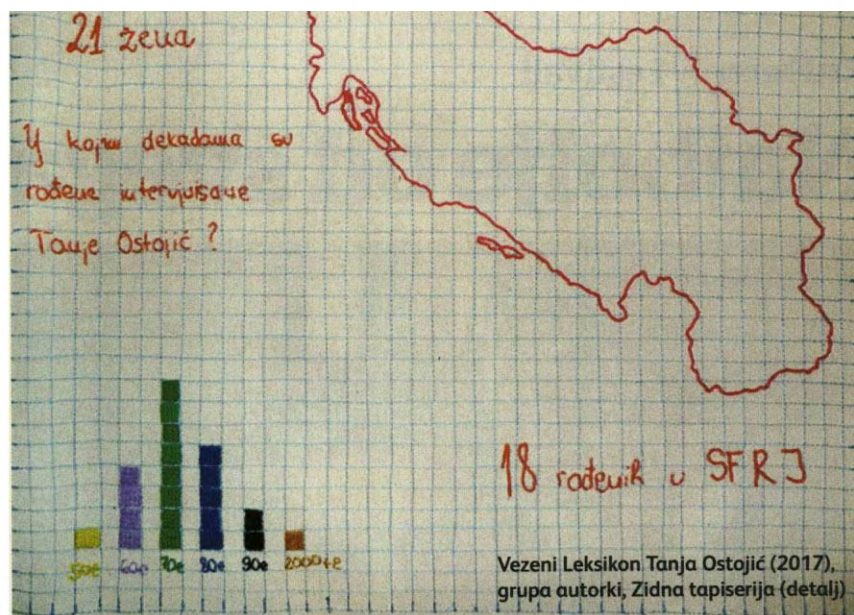 21 žena
U kojim dekadama su
rođene intervjuisane
Tanje Ostojić ?
50e 60e 70e 80e 90e 2000+e
18 rođenih u SFRJ
Vezeni Leksikon Tanja Ostojić (2017),
grupa autorki, Zidna tapiserija (detalj)